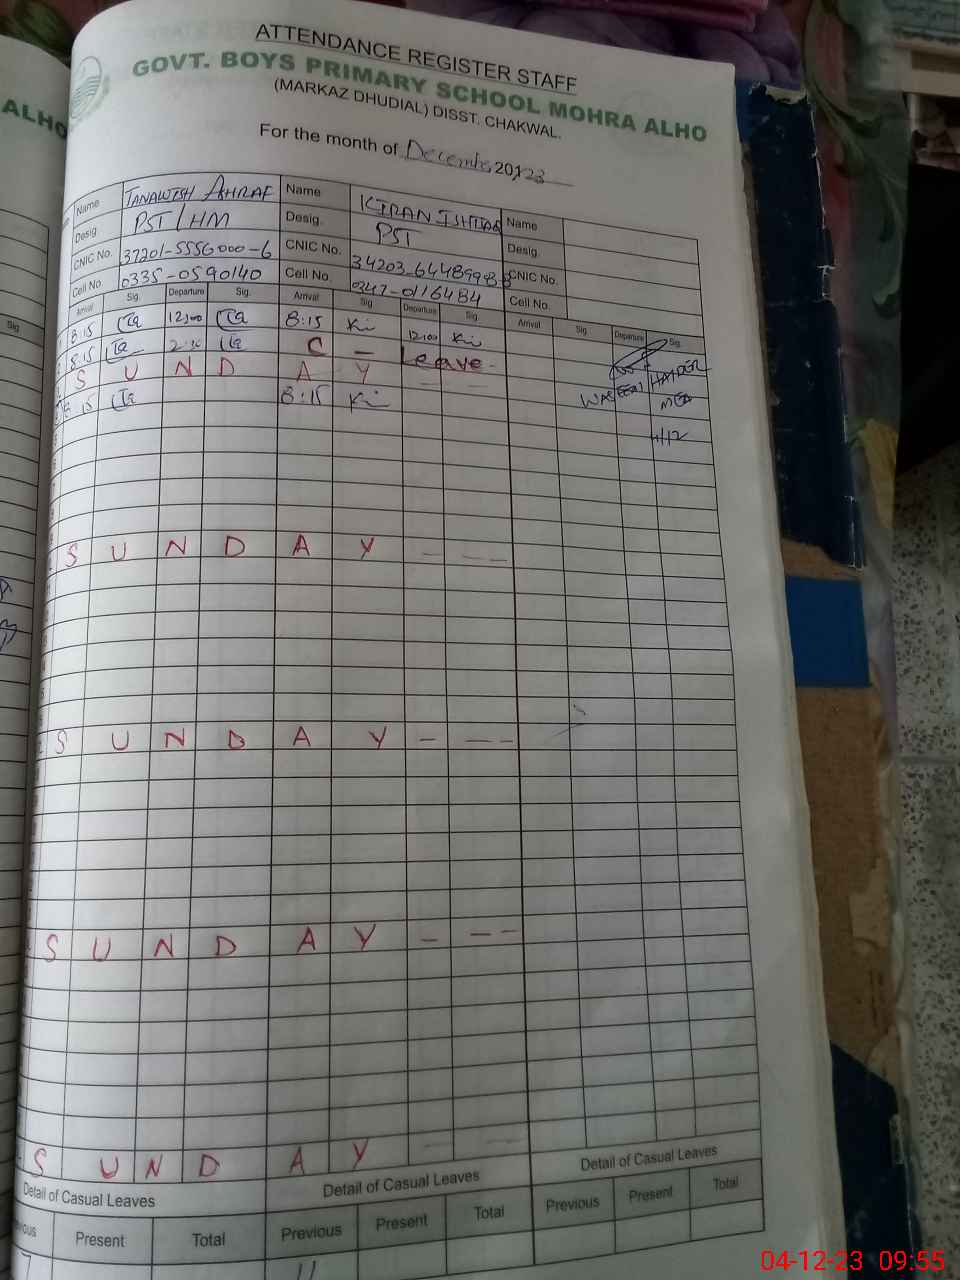 ALHO
ATTENDANCE REGISTER STAFF
GOVT. BOYS PRIMARY SCHOOL MOHRA ALHO
(MARKAZ DHUDIAL) DISST. CHAKWAL.
For the month of December 2023
Name TANAWISH ASHRAF Name KIRAN ISHTIAQ Name
Desig PST/HM Desig. PST Desig.
CNIC No. 37201-5556000-6 CNIC No. CNIC No.
Cell No 0335-0590140 Cell No. 0347-0116484 Cell No.
Arrival Sig. Departure Sig. Arrival Sig. Departure Sig. Arrival Sig. Departure Sig.
8:15 12:00 8:15 Ki 12:00 Ki
8:15 C - Leave -
S U N D A Y
8:15 8:15 Ki
WASEEM HAIDER
MEA
4/12
S U N D A Y - - - -
S U N D A Y - - - -
S U N D A Y - - -
S U N D A Y
Detail of Casual Leaves Detail of Casual Leaves Detail of Casual Leaves
Present Total Previous Present Total Previous Present Total
7 11
Sig
04-12-23 09:55